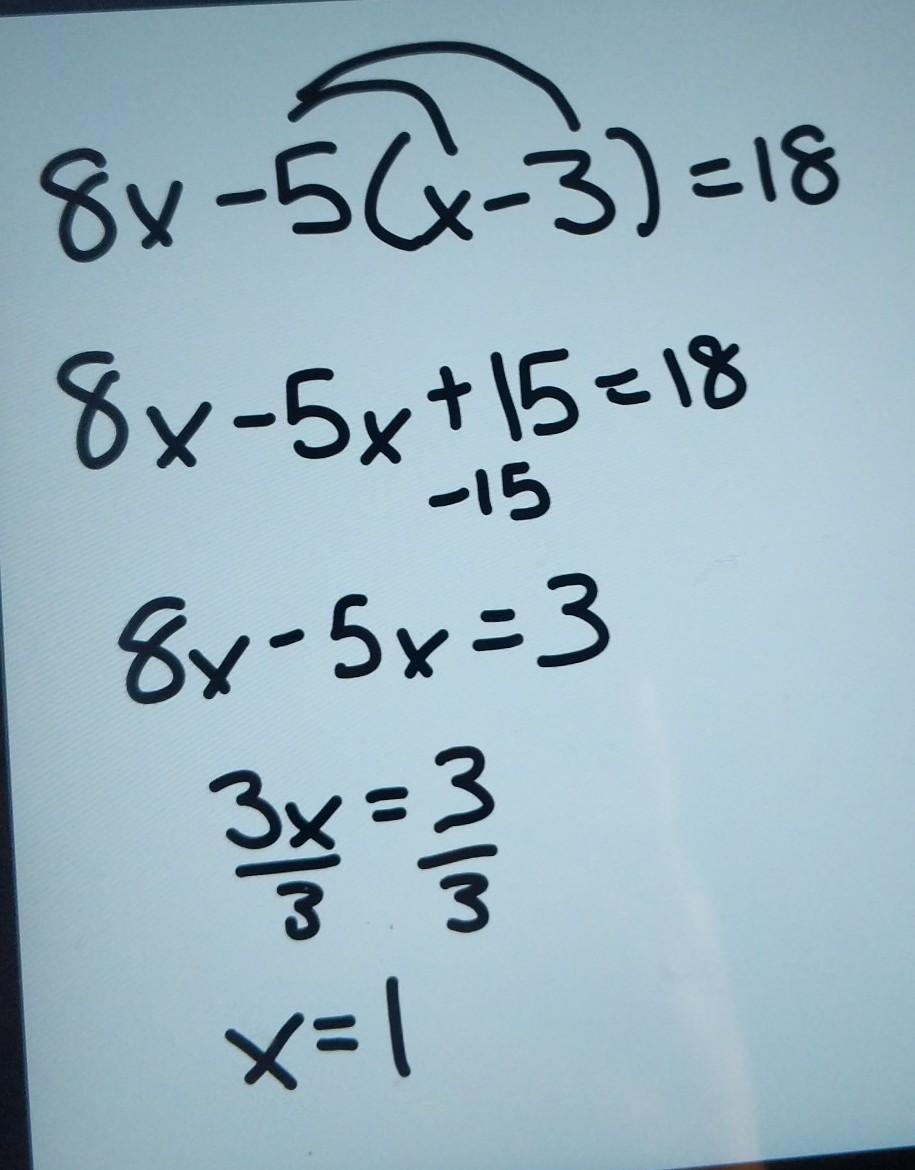 8x-5(x-3)=18
8x-5x+15=18
-15
8x-5x=3
3x=3
3 3
x=1